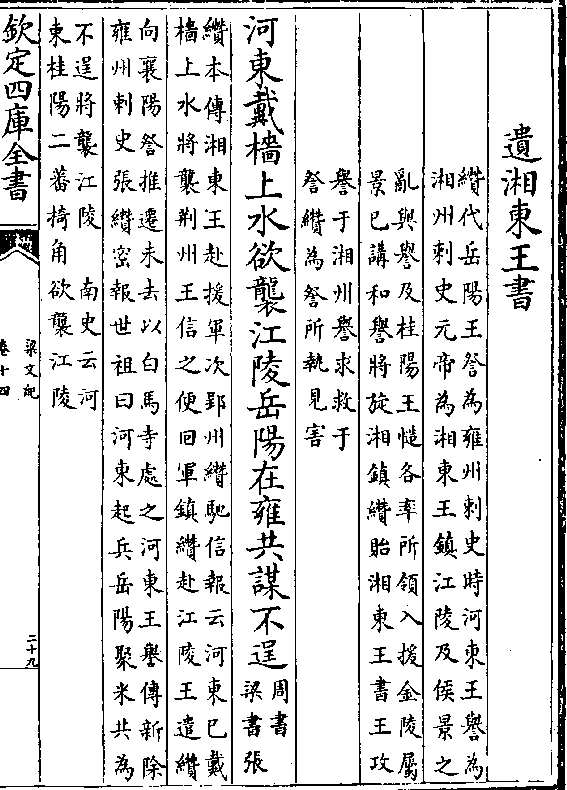 遺湘東王書
纘代岳陽王詧為雍州刺史時河東王譽為
湘州刺史元帝為湘東王鎮江陵及侯景之
亂與譽及桂陽王慥各率所領入援金陵屬
景已講和譽將旋湘鎮纘貽湘東王書王攻
譽于湘州譽求救于
詧纘為詧所執見害
河東戴檣上水欲襲江陵岳陽在雍共謀不逞
周書
梁書張
纘本傳湘東王赴援軍次郢州纘馳信報云河東已戴
檣上水將襲荆州王信之便回軍鎮纘赴江陵王遣纘
向襄陽詧推遷未去以白馬寺處之河東王譽傳新除
雍州刺史張纘密報世祖曰河東起兵岳陽聚米共為
不逞將襲江陵　南史云河
東桂陽二蕃掎角欲襲江陵
欽定四庫全書
梁文紀
卷十四
二十九